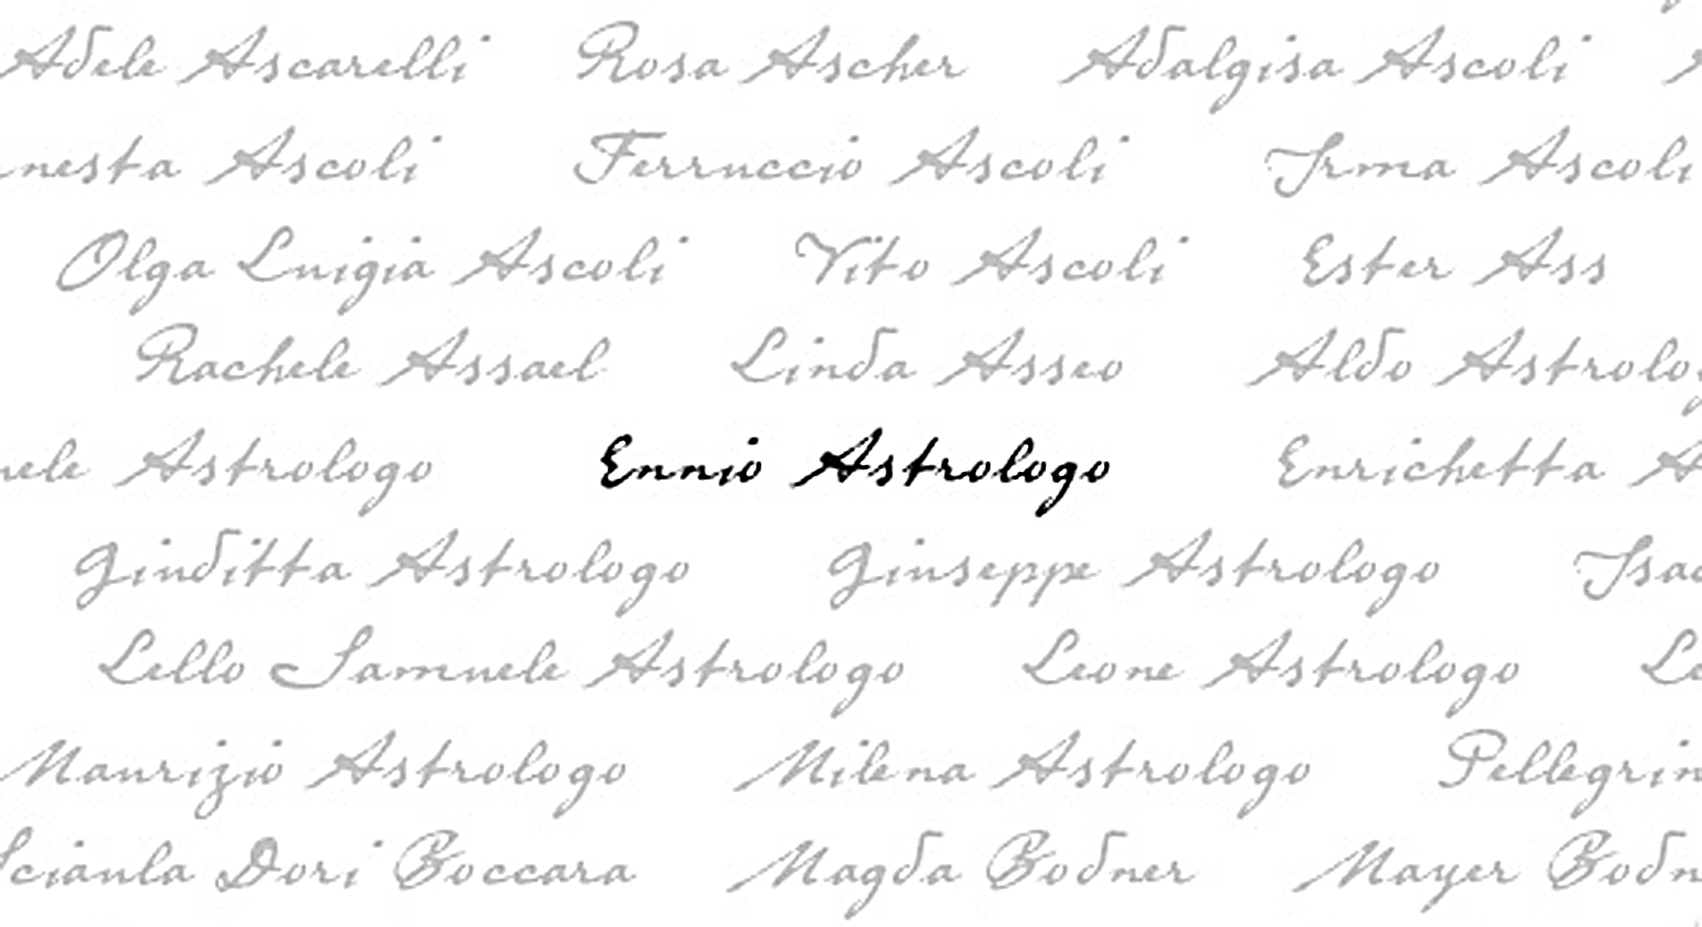 Adele Ascarelli Rosa Ascher Adalgisa Ascoli
nesta Ascoli Ferruccio Ascoli Irma Ascoli
Olga Luigia Ascoli Vito Ascoli Ester Ass
Rachele Assael Linda Asseo Aldo Astrolog
uele Astrologo Ennio Astrologo Enrichetta A
Giuditta Astrologo Giuseppe Astrologo Isac
Lello Samuele Astrologo Leone Astrologo Le
Maurizio Astrologo Milena Astrologo Pellegrin
Sciaula Dori Boccara Magda Bodner Mayer Bodn